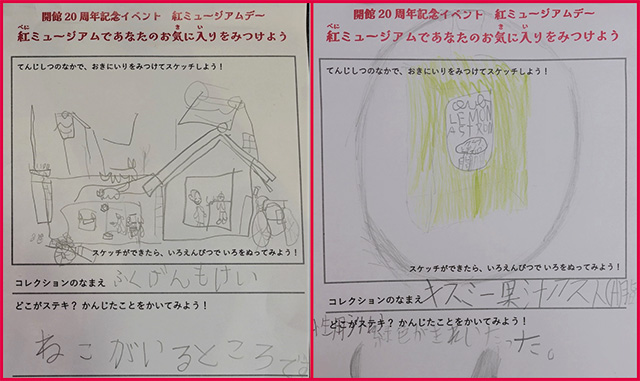 開館20周年記念イベント 紅ミュージアムデー
紅ミュージアムであなたのお気に入りをみつけよう
べに
き
い
てんじしつのなかで、おきにいりをみつけてスケッチしよう！
スケッチができたら、いろえんぴつで いろをぬってみよう！
コレクションのなまえ ふくげんもけい
どこがステキ？ かんじたことをかいてみよう！
ねこがいるところです
開館20周年記念イベント 紅ミュージアムデー
紅ミュージアムであなたのお気に入りをみつけよう
べに
き
い
てんじしつのなかで、おきにいりをみつけてスケッチしよう！
LEMON
スケッチができたら、いろえんぴつで いろをぬってみよう！
コレクションのなまえ キスミー果汁
どこがステキ？ かんじたことをかいてみよう！
がきれいだった。